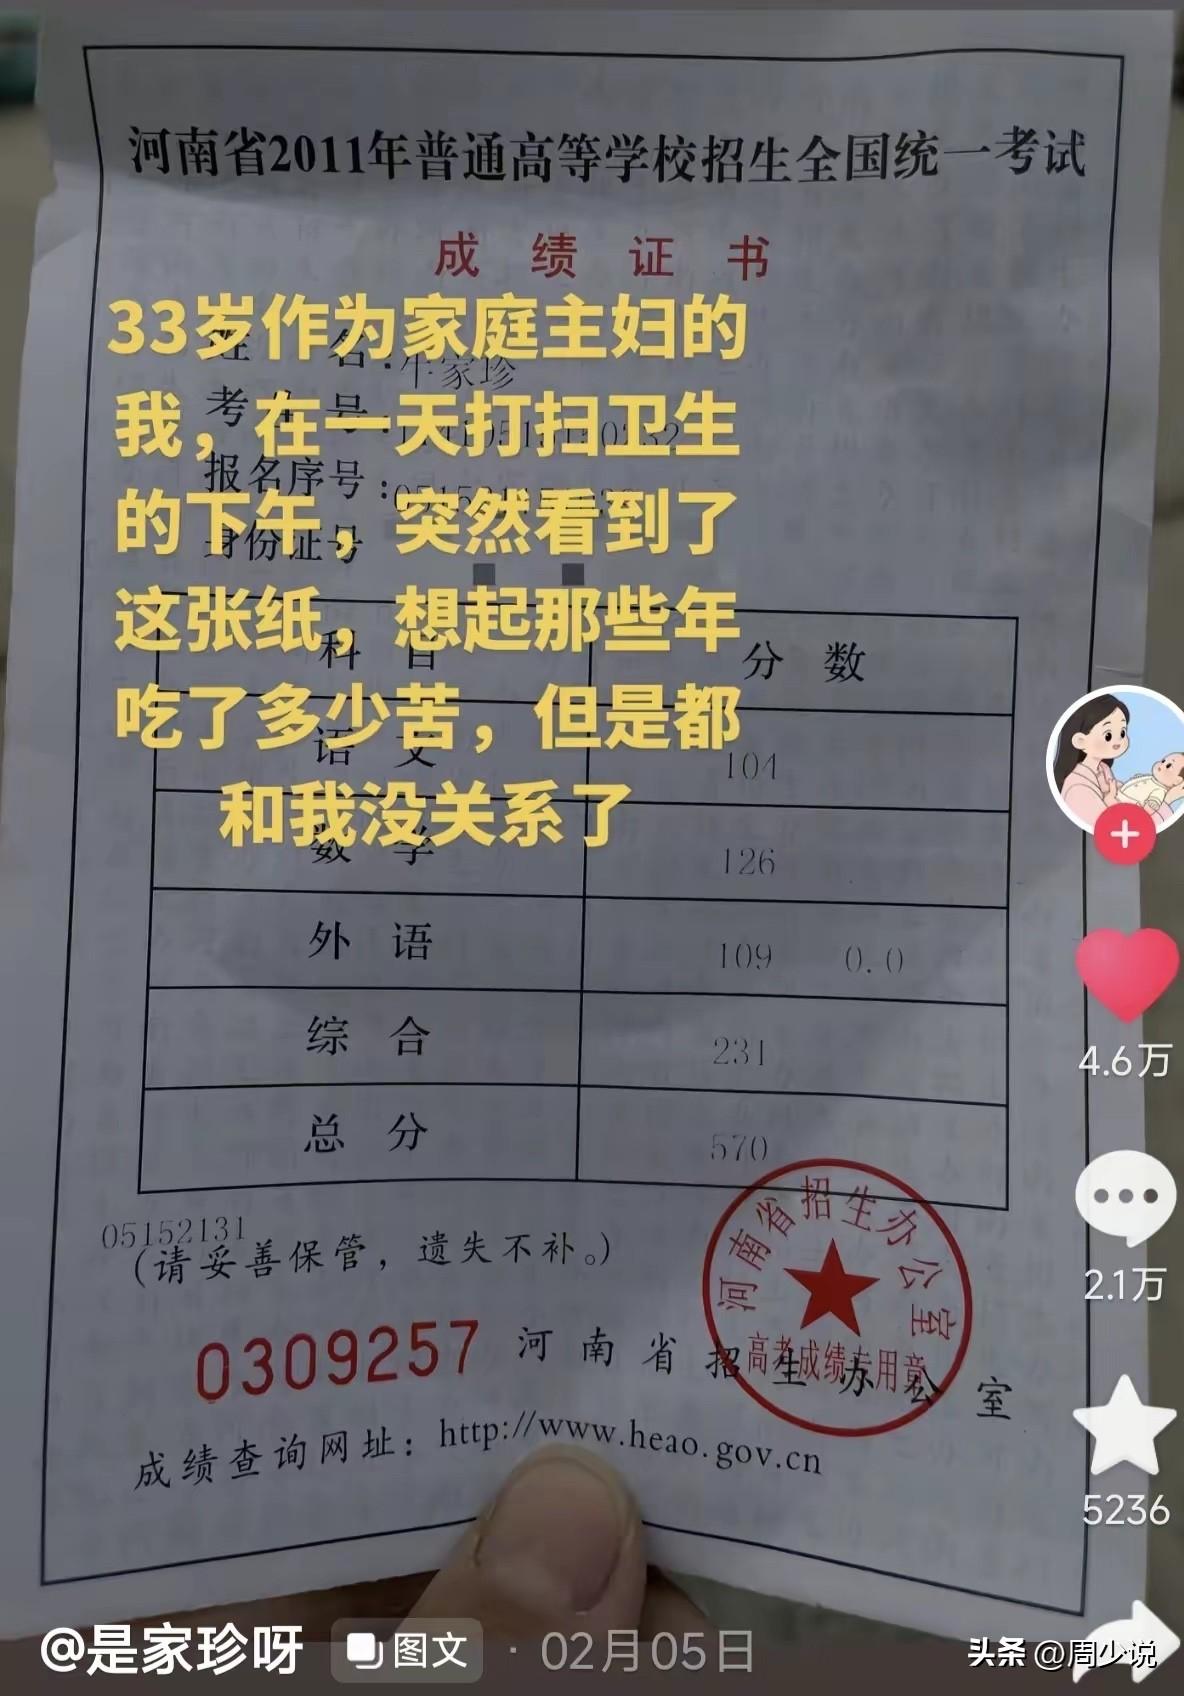 河南省2011年普通高等学校招生全国统一考试
成绩证书
33岁作为家庭主妇的
我，在一天打扫卫生
的下午，突然看到了
这张纸，想起那些年
吃了多少苦，但是都
和我没关系了
姓名：牛家珍
考生号
报名序号：
身份证号
科目 分数
语文 104
数学 126
外语 109 0.0
综合 231
总分 570
05152131
（请妥善保管，遗失不补。）
0309257 河南省招生办公室
河南省招生办公室
高考成绩专用章
成绩查询网址：http://www.heao.gov.cn
4.6万
2.1万
5236
@是家珍呀 图文 · 02月05日
头条 @周少说